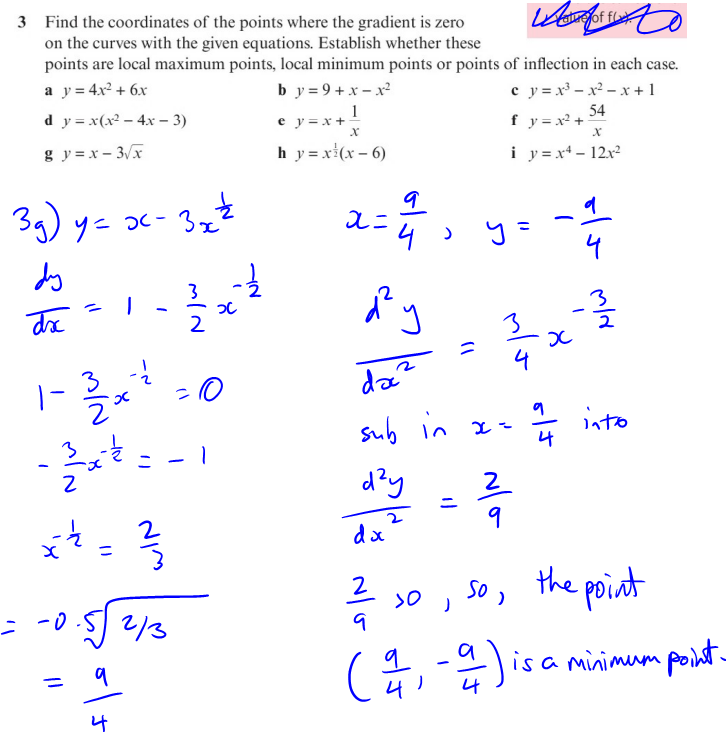 3 Find the coordinates of the points where the gradient is zero
on the curves with the given equations. Establish whether these
points are local maximum points, local minimum points or points of inflection in each case.
a y = 4x² + 6x
b y = 9 + x − x²
c y = x³ − x² − x + 1
d y = x(x² − 4x − 3)
e y = x + 1/x
f y = x² + 54/x
g y = x − 3√x
h y = x^(1/2)(x − 6)
i y = x⁴ − 12x²
3g) y = x − 3x^(1/2)
dy/dx = 1 − 3/2 x^(−1/2)
1 − 3/2 x^(−1/2) = 0
− 3/2 x^(−1/2) = −1
x^(−1/2) = 2/3
= −0.5√2/3
= 9/4
x = 9/4 , y = −9/4
d²y/dx² = 3/4 x^(−3/2)
sub in x = 9/4 into
d²y/dx² = 2/9
2/9 >0 , so, the point
(9/4, −9/4) is a minimum point.